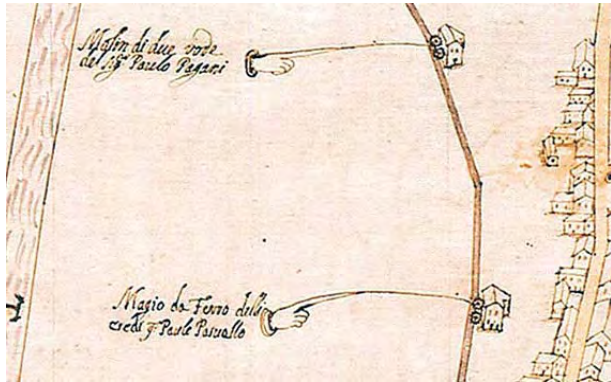 Molin di due rode
del sg.r Paulo Pagani
Magio da Ferro delli
eredi q Paule Pasuallo